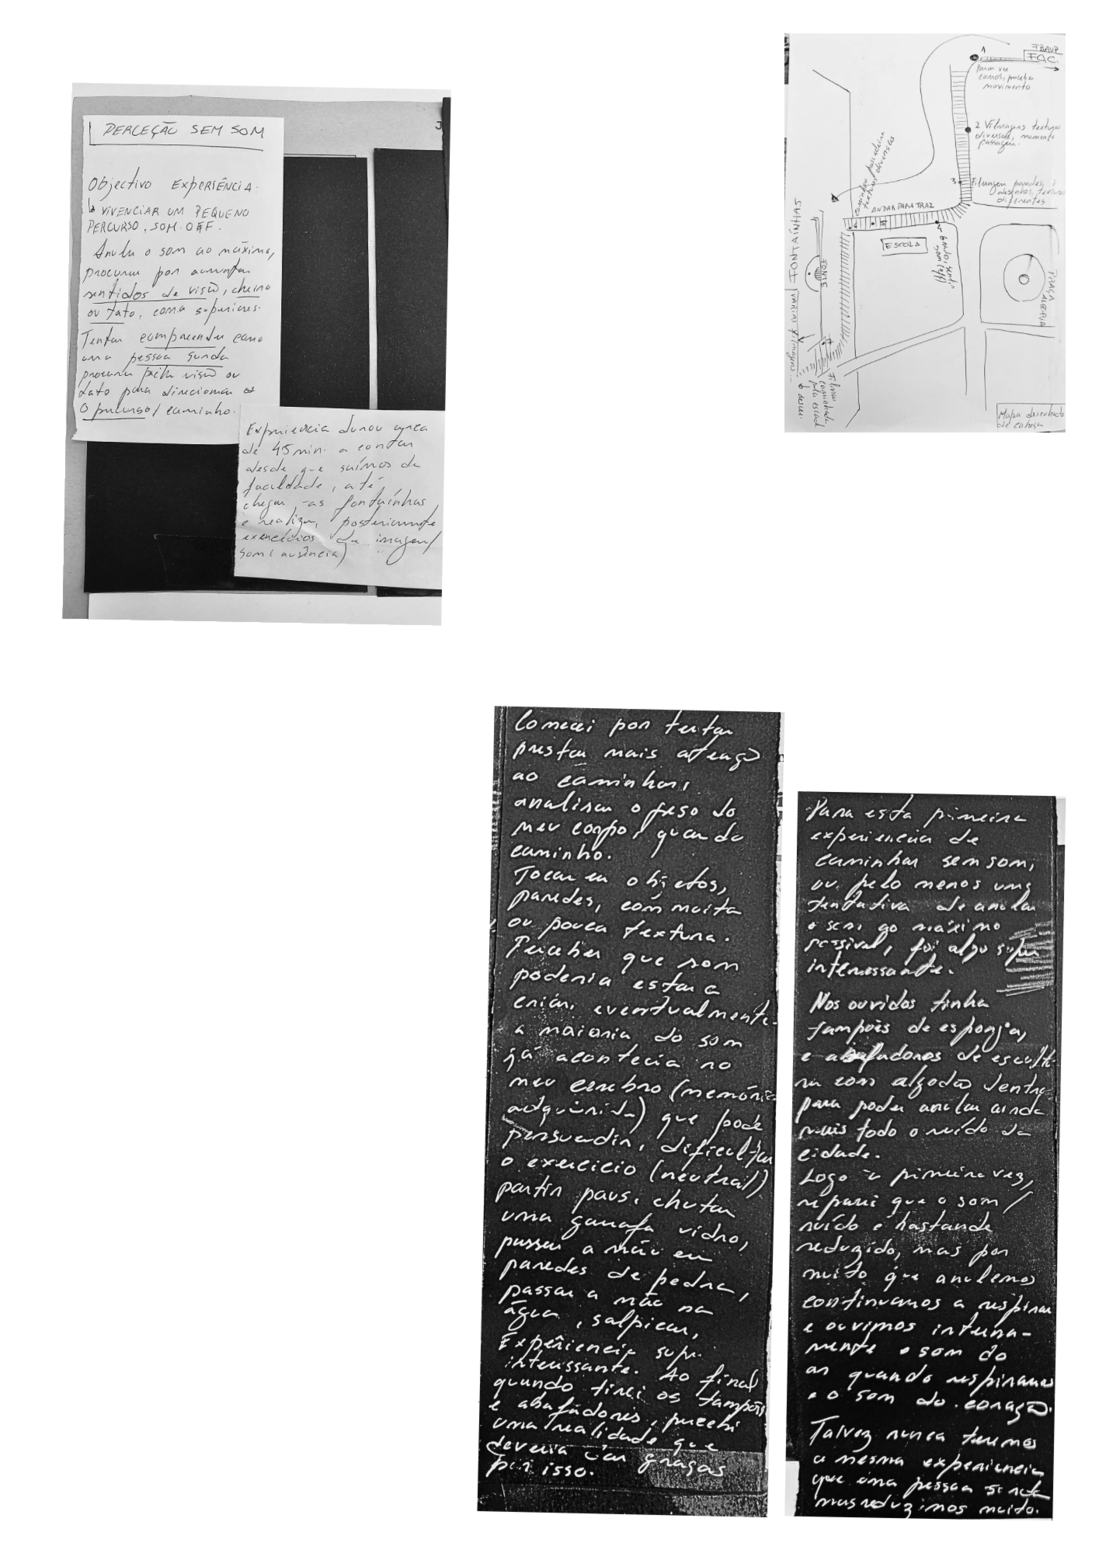 PERCEÇÃO SEM SOM
Objectivo EXPERIÊNCIA.
VIVENCIAR UM PEQUENO
PERCURSO, SOM OFF.
Anular o som ao máximo,
procurar por aumentar
sentidos de visão, cheiro
ou tato, como superiores.
Tentar compreender como
uma pessoa surda
procura pela visão ou
tato para direcionar
o percurso / caminho.
Experiencia durou cerca
de 45 min. a contar
desde que saímos da
faculdade, até
chegar as fontaínhas
e realizar, posteriormente
exercícios de imagem/
som (ausência)
1
FBAUP
FAC.
movimento
2 Filmagens texturas
diversas, momento
paragem.
3 Filmagem paredes,
desenhos, texturas
diferentes
ANDAR PARA TRAZ
ESCOLA
FONTE
FONTAÍNHAS
PRAÇA
ALEGRIA
Mapa desenhado
de cabeça
Comecei por tentar
prestar mais atenção
ao caminhar,
analisar o peso do
meu corpo, quando
caminho.
Tocar em objetos,
paredes, com muita
ou pouca textura.
Perceber que som
poderia estar a
criar, eventualmente.
a maioria do som
já acontecia no
meu cérebro (memória
adquirida) que pode
persuadir, dificultar
o exercicio (neutral)
partir paus, chutar
uma garrafa vidro,
passar a mão em
paredes de pedra,
passar a mão na
água, salpicar,
Expêriencia super
interessante. Ao final
quando tirei os tampões
e abafadores, percebi
uma realidade que
deveria dar graças
por isso.
Para esta primeira
experiencia de
caminhar sem som,
ou pelo menos uma
tentativa de anular
o som ao máximo
possivel, foi algo super
interessante.
Nos ouvidos tinha
tampões de esponja,
e abafadores de escult-
ra com algodão dentro
para poder anular ainda
mais todo o ruído da
cidade.
Logo à primeira vez,
reparei que o som /
ruído é bastante
reduzido, mas por
muito que anulemos
continuamos a respirar
e ouvimos interna-
mente o som do
ar quando respiramos
e o som do coração.
Talvez nunca teremos
a mesma experiencia
que uma pessoa surda
mas reduzimos muito.